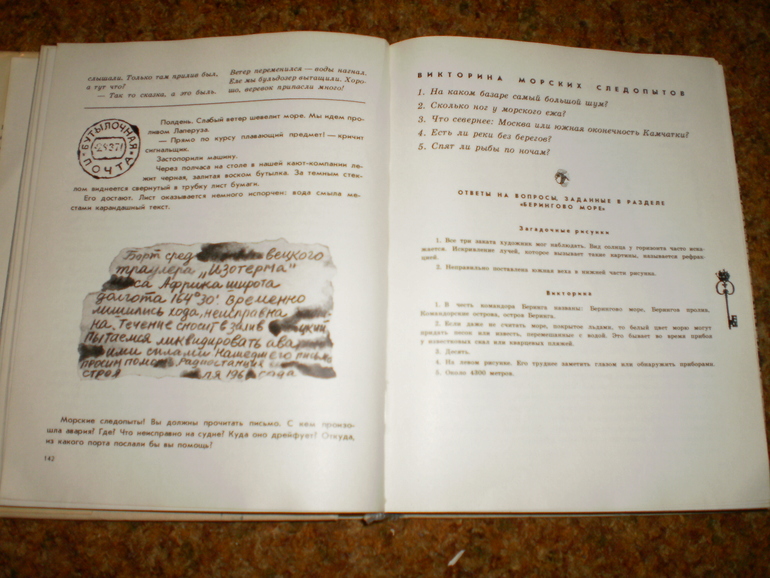 слышали. Только там прилив был,
а тут что?
— Так то сказка, а это быль.
Ветер переменился — воды нагнал.
Еле мы бульдозер вытащили. Хоро-
шо, веревок припасли много!
БУТЫЛОЧНАЯ
ПОЧТА
Полдень. Слабый ветер шевелит море. Мы идем про-
ливом Лаперуза.
— Прямо по курсу плавающий предмет! — кричит
сигнальщик.
Застопорили машину.
Через полчаса на столе в нашей кают-компании ле-
жит черная, залитая воском бутылка. За темным стек-
лом виднеется свернутый в трубку лист бумаги.
Его достают. Лист оказывается немного испорчен: вода смыла ме-
стами карандашный текст.
Борт сред вецкого
траулера „Изотерма"
са Африка широта
долгота 164°30'. Временно
лишились хода, неисправна
на. Течение сносит в залив цкий.
Пытаемся ликвидировать ава
ими силами. Нашедшего
просим помо Радиостанция
строя ля 196 года
Морские следопыты! Вы должны прочитать письмо. С кем произо-
шла авария? Где? Что неисправно на судне? Куда оно дрейфует? Откуда,
из какого порта послали бы вы помощь?
142
ВИКТОРИНА МОРСКИХ СЛЕДОПЫТОВ
1. На каком базаре самый большой шум?
2. Сколько ног у морского ежа?
3. Что севернее: Москва или южная оконечность Камчатки?
4. Есть ли реки без берегов?
5. Спят ли рыбы по ночам?
ОТВЕТЫ НА ВОПРОСЫ, ЗАДАННЫЕ В РАЗДЕЛЕ
«БЕРИНГОВО МОРЕ»
Загадочные рисунки
1. Все три заката художник мог наблюдать. Вид солнца у горизонта часто иска-
жается. Искривление лучей, которое вызывает такие картины, называется рефрак-
цией.
2. Неправильно поставлена южная веха в нижней части рисунка.
Викторина
1. В честь командора Беринга названы: Берингово море, Берингов пролив,
Командорские острова, остров Беринга.
2. Если даже не считать море, покрытое льдами, то белый цвет морю могут
придать песок или известь, перемешанные с водой. Это бывает во время прибоя
у известковых скал или кварцевых пляжей.
3. Десять.
4. На левом рисунке. Его труднее заметить глазом или обнаружить приборами.
5. Около 4300 метров.